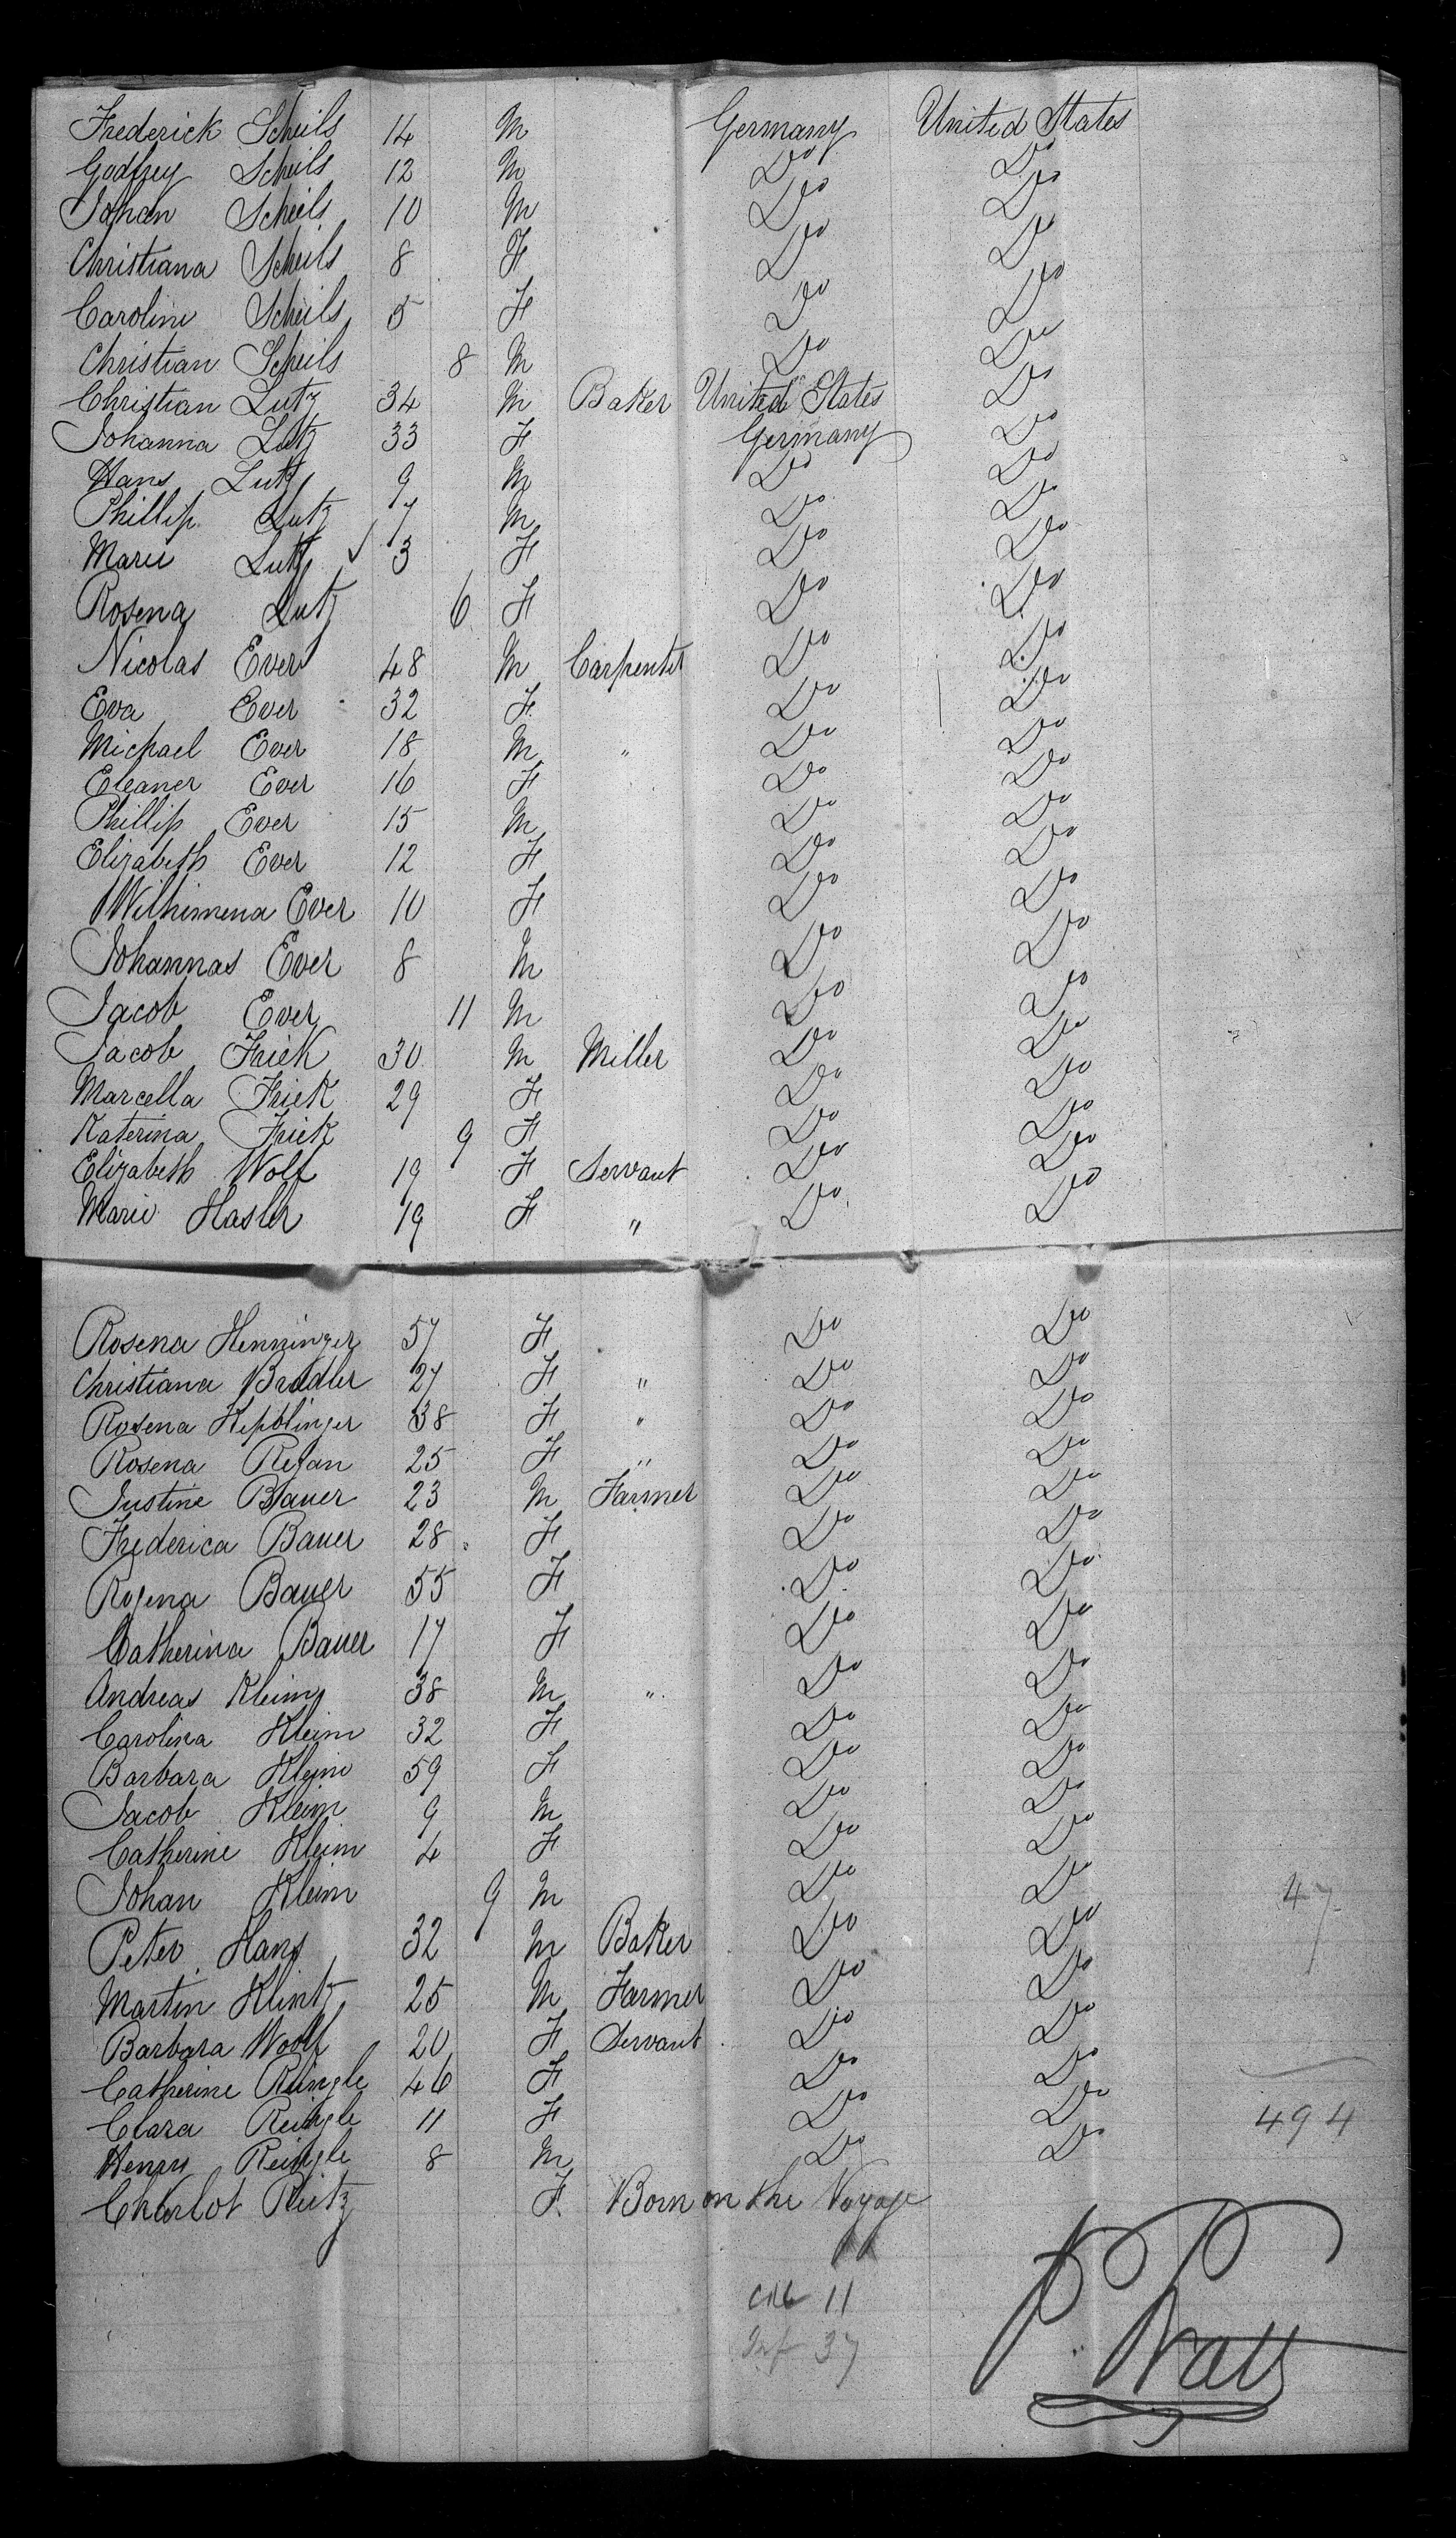 Frederick Scheils 14 M Germany United States
Godfrey Scheils 12 M Do Do
Johan Scheils 10 M Do Do
Christiana Scheils 8 F Do Do
Carolini Scheils 5 F Do Do
Christian Scheils 8 M Do Do
Christian Lutz 34 M Baker United States Do
Johanna Lutz 33 F Germany Do
Hans Lutz 9 M Do Do
Phillip Lutz 7 M Do Do
Marie Lutz 3 F Do Do
Rosena Lutz 6 F Do Do
Nicolas Ever 48 M Carpenter Do Do
Eva Ever 32 F Do Do
Michael Ever 18 M " Do Do
Eleaner Ever 16 F Do Do
Phillip Ever 15 M Do Do
Elizabeth Ever 12 F Do Do
Wilhimena Ever 10 F Do Do
Johannas Ever 8 M Do Do
Jacob Ever 11 M Do Do
Jacob Frick 30 M Miller Do Do
Marcella Frick 29 F Do Do
Katerina Frick 9 F Do Do
Elizabeth Wolf 19 F Servant Do Do
Marie Hasler 19 F " Do Do
Rosena Henninger 57 F Do Do
Christiana Bradler 27 F " Do Do
Rosena 38 F " Do Do
Rosena Regan 25 F " Do Do
Justine Bauer 23 M Farmer Do Do
Frederica Bauer 28 F Do Do
Rosena Bauer 55 F Do Do
Catherina Bauer 17 F Do Do
Andreas Kleim 38 M " Do Do
Carolina Kleim 32 F Do Do
Barbara Kleim 59 F Do Do
Jacob Kleim 9 M Do Do
Catherine Kleim 4 F Do Do
Johan Kleim 9 M Do Do 47
Peter Hans 32 M Baker Do Do
Martin Klintz 25 M Farmer Do Do
Barbara Woolf 20 F Servant Do Do
Catherine Reingle 46 F Do Do
Clara Reingle 11 F Do Do 494
Henry Reingle 8 M Do Do
Charlot Reitz F Born on the Voyage
11
Inf 37